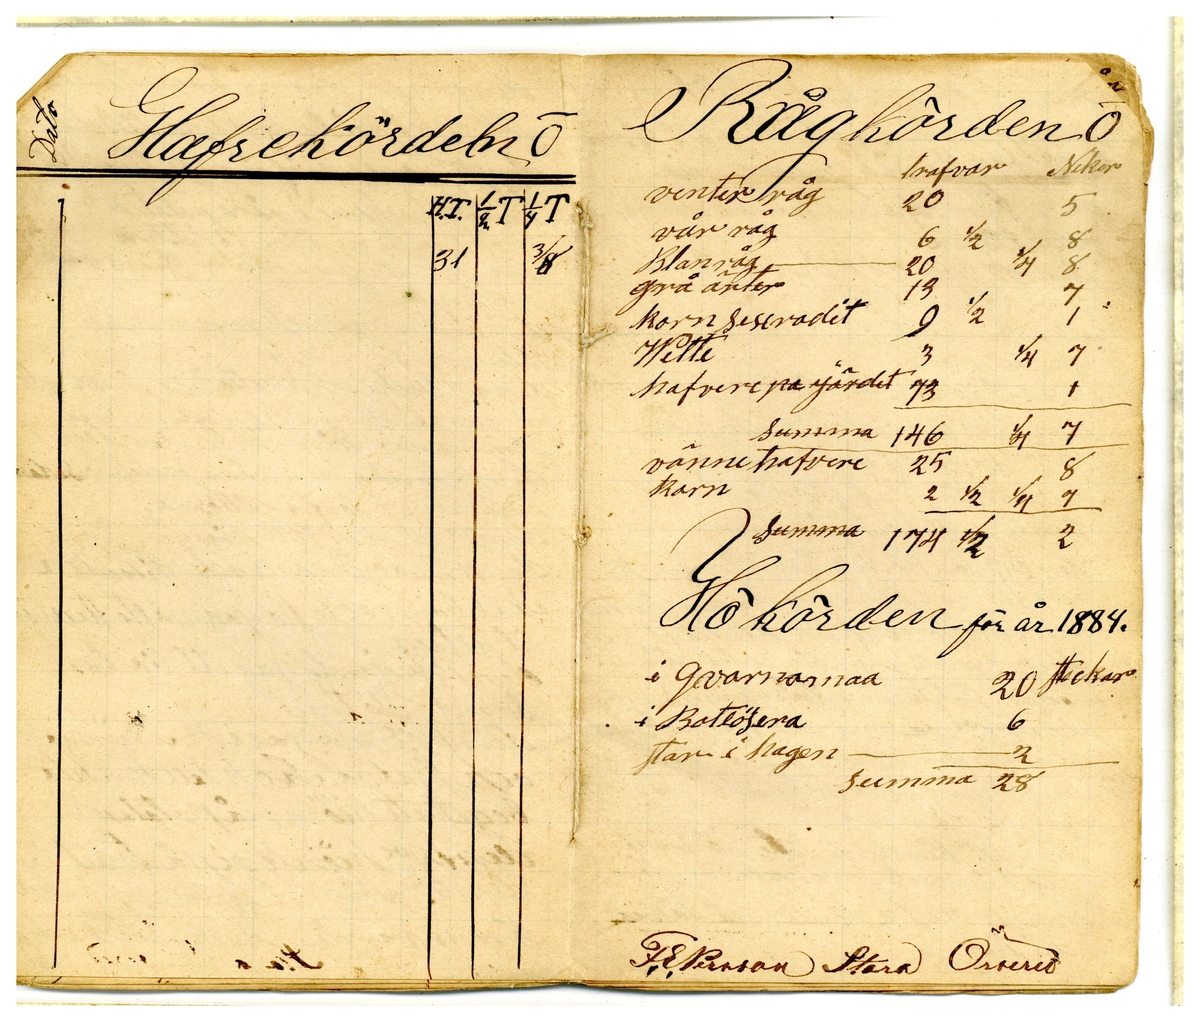 Dato
Hafrekördeln ō
H.T. 1/2 T 1/4 T
31 3/8
Rågkörden ō
trafvar Neker
venter råg 20 5
vår råg 6 1/2 8
Blanråg 20 1/4 8
grå ärter 13 7
korn sescradit 9 1/2 1
Wette 3 1/4 7
hafvere pa gärdet 73 1
Summa 146 1/4 7
vänne hafvere 25 8
Korn 2 1/2 1/4 7
Summa 174 1/2 2
Hökörden för år 1884.
i qvarnamaa 20 steckar
i Botlösera 6
star i hagen 2
Summa 28
F. E. Persson Stora Örsered